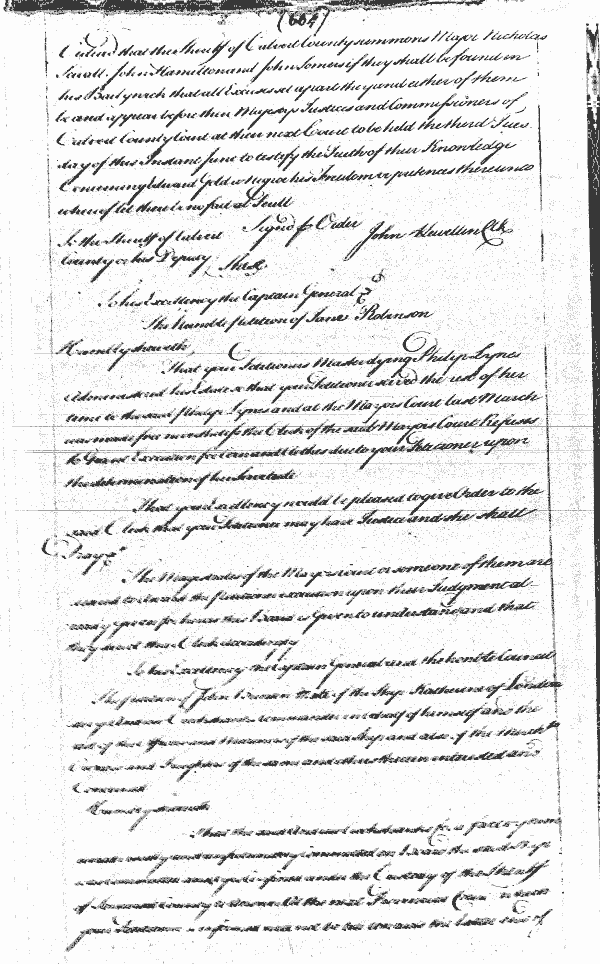 (664)
Ordered that the Sheriff of Calvert County summons Major Nicholas
Sewall John Hamilton and John Somers if they shall be found in
his Bailywick that all Excuses set apart they and either of them
be and appear before their Majestys Justices and Commissioners of
Calvert County Court at their next Court to be held the third Tues
day of this Instant June to testify the Truth of their Knowledge
Concerning Edward Gold a Negroe his Freedom or pretences thereunto
whereof let there be no fail at Perill
To the Sheriff of Calvert Signed p Order John Llewellin Clk
County or his Deputy
To his Excellency the Captain General &
The humble petition of Jane Robinson
Humbly sheweth,
That your Petitioners Master dying Philip Lynes
Administered his Estate so that your Petitioner served the rest of her
time to the said Philip Lynes and at the Mayors Court last March
was made free nevertheless the Clerk of the said Mayors Court Refuses
to Grant Execution for Corn and Clothes due to your Petitioner upon
the determination of her Servitude
That your Excellency would be pleased to give Order to the
said Clerk that your Petitioner may have Justice and she shall
Pray &c
The Magistrates of the Mayors Court or some one of them are
to Award the Petitioner execution upon their Judgment al
ready given for her as this Board is Given to understand and that
they direct their Clerk accordingly
To his Excellency the Captain General and the honble Council
The petition of John Mate of the Ship Katherine of London
Commander in behalf of himself and the
rest of the Officers and Mariners of the said Ship and also of the Merchts
Owners and Freighters of the same and others therein interested and
Concerned
Humbly sheweth
That the said
committed on Board the said Ship
under the Custody of the Sheriff
of Somerset County the next Provincial Court
your Petitioner is informed will not be the end of